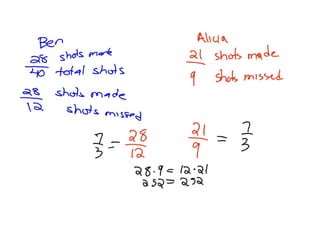 Ben
28 shots made
40 total shots
28 shots made
12 shots missed
Alicia
21 shots made
9 shots missed
7/3 = 28/12
21/9 = 7/3
28·9 = 12·21
252 = 252